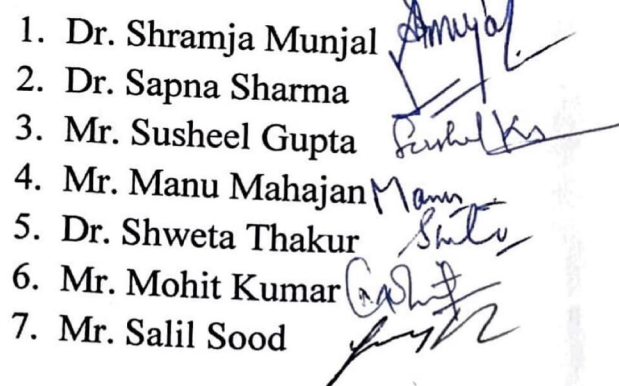 1. Dr. Shramja Munjal
2. Dr. Sapna Sharma
3. Mr. Susheel Gupta
4. Mr. Manu Mahajan Manu
5. Dr. Shweta Thakur
6. Mr. Mohit Kumar
7. Mr. Salil Sood